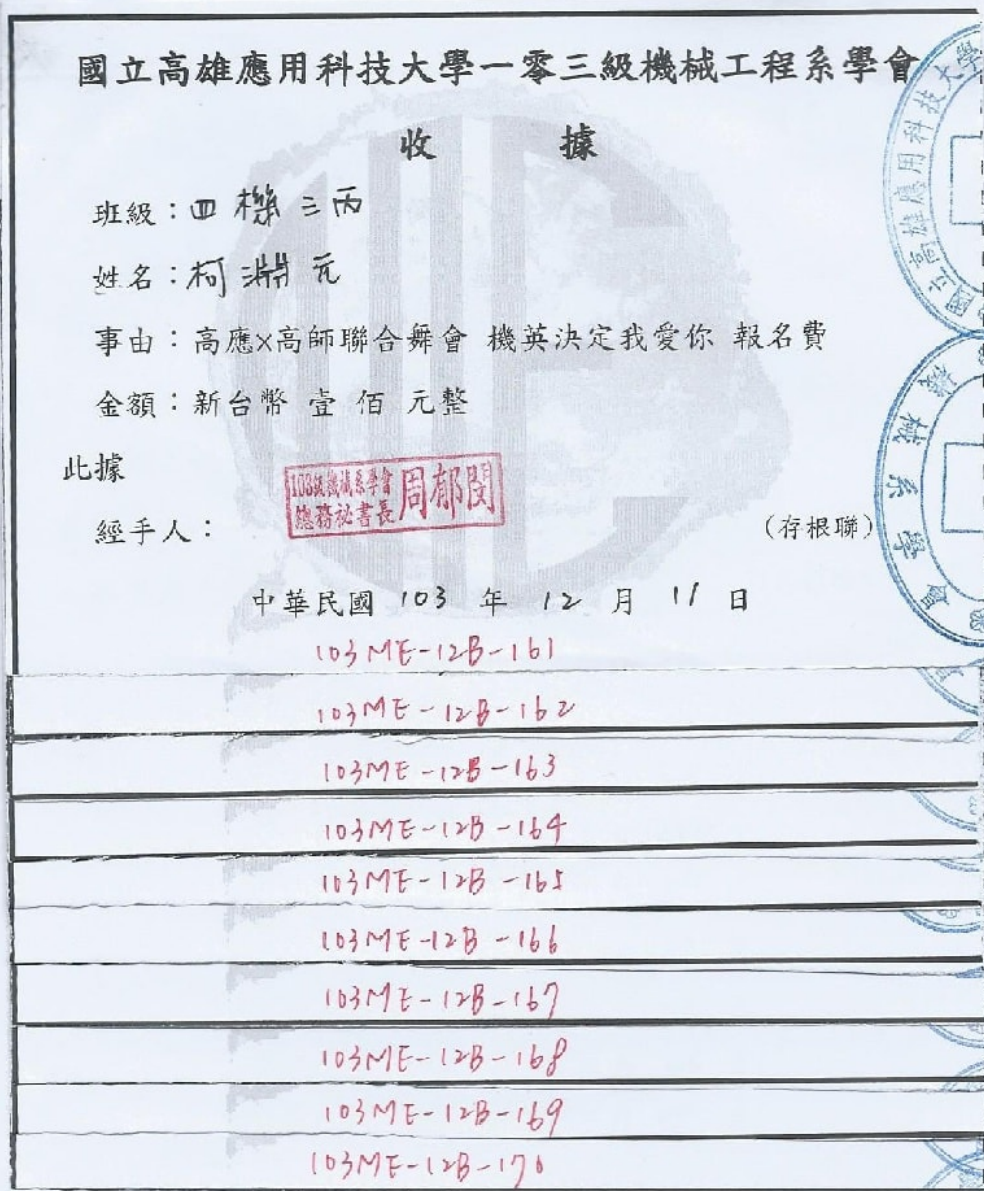 國立高雄應用科技大學一零三級機械工程系學會
收 據
班級：四機三丙
姓名：柯淵元
事由：高應x高師聯合舞會 機英決定我愛你 報名費
金額：新台幣 壹 佰 元整
此據
經手人：
103級機械系學會
總務祕書長
周郁閔
（存根聯）
中華民國 103 年 12 月 11 日
103ME-12B-161
103ME-12B-162
103ME-12B-163
103ME-12B-164
103ME-12B-165
103ME-12B-166
103ME-12B-167
103ME-12B-168
103ME-12B-169
103ME-12B-170
國立高雄應用科技大學
機械系學會